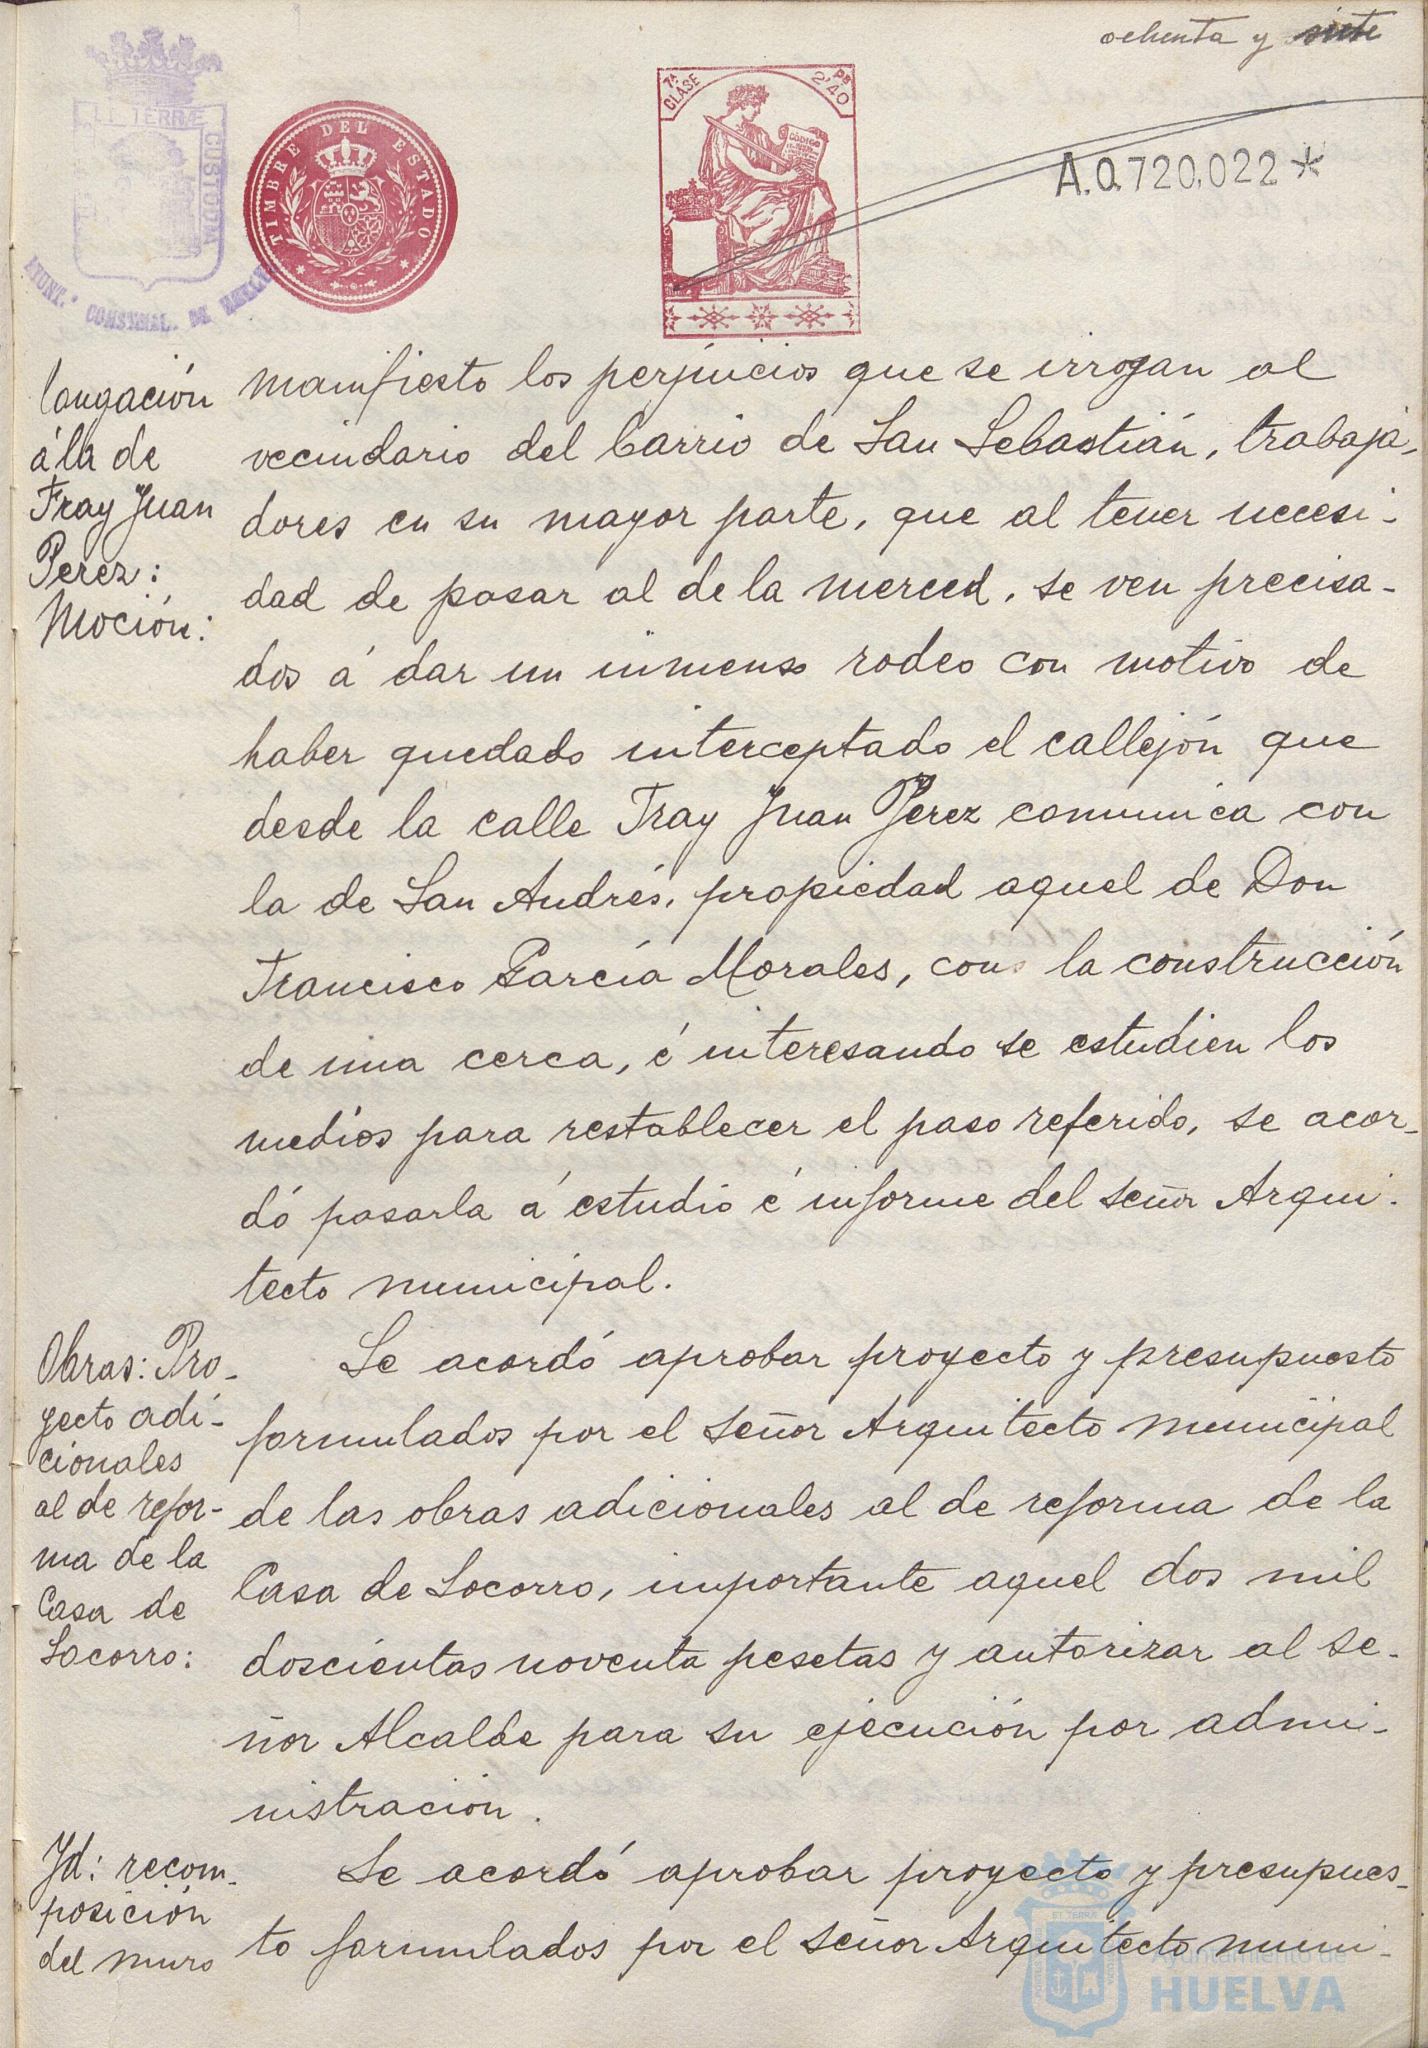 ochenta y siete
ET TERRÆ
CUSTODIA
AYUNT.º CONSTNAL. DE HUELVA
TIMBRE DEL ESTADO
7ª CLASE
2'40
CÓDIGO
A.0.720,022*
longación
á la de
Fray Juan
Perez:
Moción:
manifiesto los perjuicios que se irrogan al
vecindario del barrio de San Sebastián, trabaja-
dores en su mayor parte, que al tener necesi-
dad de pasar al de la merced, se ven precisa-
dos á dar un inmenso rodeo con motivo de
haber quedado interceptado el callejón que
desde la calle Fray Juan Perez comunica con
la de San Andrés, propiedad aquel de Don
Francisco García Morales, con la construcción
de una cerca, é interesando se estudien los
medios para restablecer el paso referido, se acor-
dó pasarla á estudio é informe del señor Arqui-
tecto municipal.
Obras: Pro-
yecto adi-
cionales
al de refor-
ma de la
Casa de
Socorro:
Se acordó aprobar proyecto y presupuesto
formulados por el señor Arquitecto municipal
de las obras adicionales al de reforma de la
Casa de Socorro, importante aquel dos mil
doscientas noventa pesetas y autorizar al se-
ñor Alcalde para su ejecución por admi-
nistración.
Yd: recom-
posición
del muro
Se acordó aprobar proyecto y presupues-
to formulados por el señor Arquitecto muni-
Ayuntamiento de
HUELVA